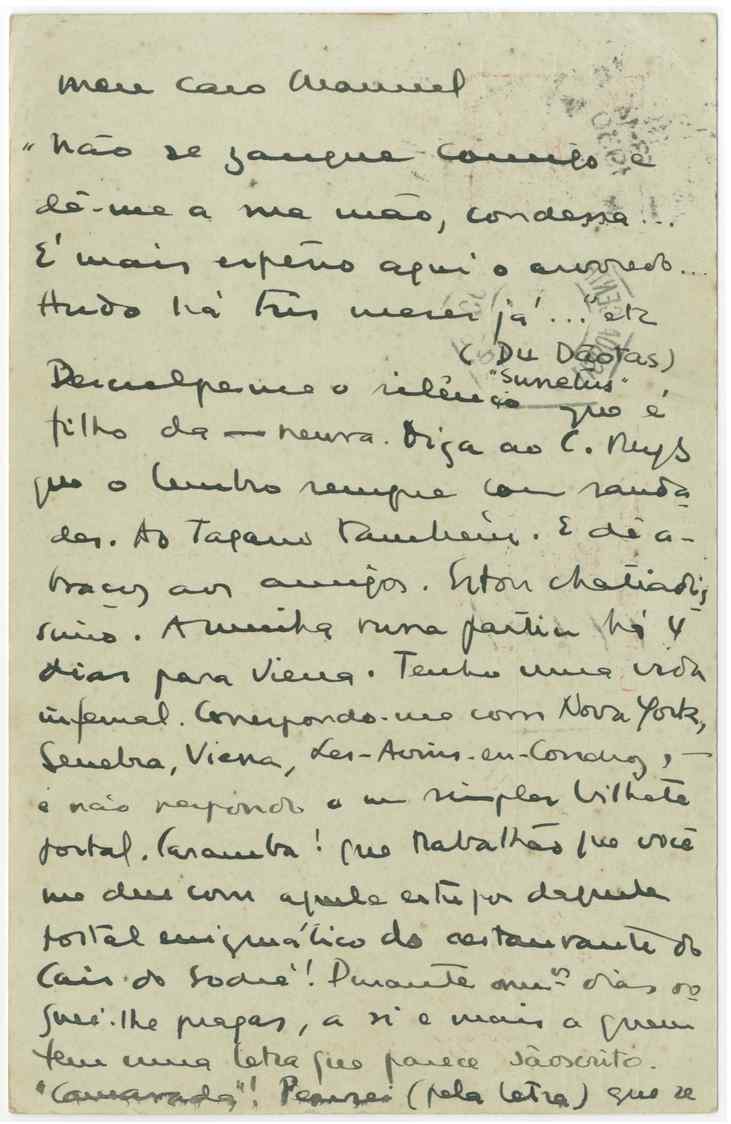 Meu caro Manuel
"Não se zangue comigo e
dê-me a sua mão, condessa...
É mais espesso aqui o arvoredo...
Ando há três meses já..." etc
(Du Dãotas)
"Sunetus"
Desculpe-me o silêncio que é
filho da — neura. Diga ao C. Ruy
que o lembro sempre com sauda-
des. Ao Tagano também. E dê a-
braços aos amigos. Estou chatiadis-
simo. A minha russa partiu há 4
dias para Viena. Tenho uma vida
infernal. Correspondo-me com Nova York,
Genebra, Viena, Les-Avins-en-Condroz, —
e não respondo a um simples bilhete
postal. Caramba! que trabalhão que você
me deu com aquele estupor daquele
postal enigmático do restaurante do
Cais do Sodré! Durante dias ro-
guei-lhe pragas, a si e mais a quem
tem uma letra que parece sãoscrito.
"Camarada"! Pensei (pela letra) que se